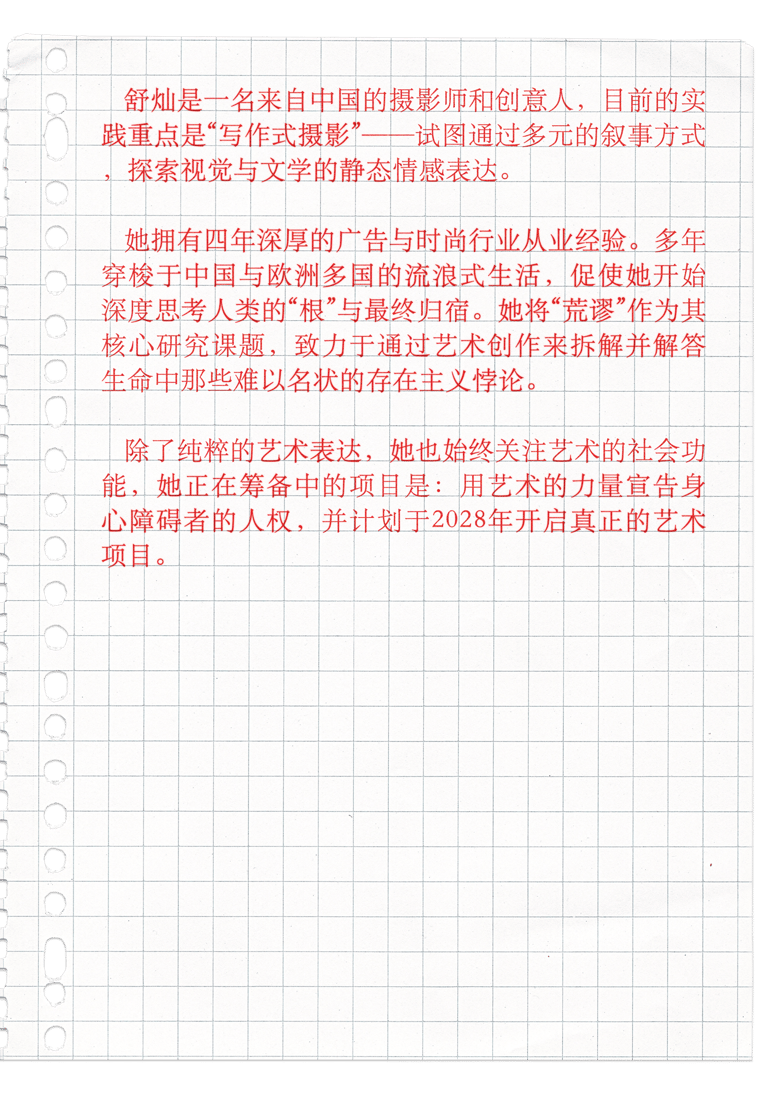 舒灿是一名来自中国的摄影师和创意人，目前的实
践重点是“写作式摄影”——试图通过多元的叙事方式
，探索视觉与文学的静态情感表达。
她拥有四年深厚的广告与时尚行业从业经验。多年
穿梭于中国与欧洲多国的流浪式生活，促使她开始
深度思考人类的“根”与最终归宿。她将“荒谬”作为其
核心研究课题，致力于通过艺术创作来拆解并解答
生命中那些难以名状的存在主义悖论。
除了纯粹的艺术表达，她也始终关注艺术的社会功
能，她正在筹备中的项目是：用艺术的力量宣告身
心障碍者的人权，并计划于2028年开启真正的艺术
项目。